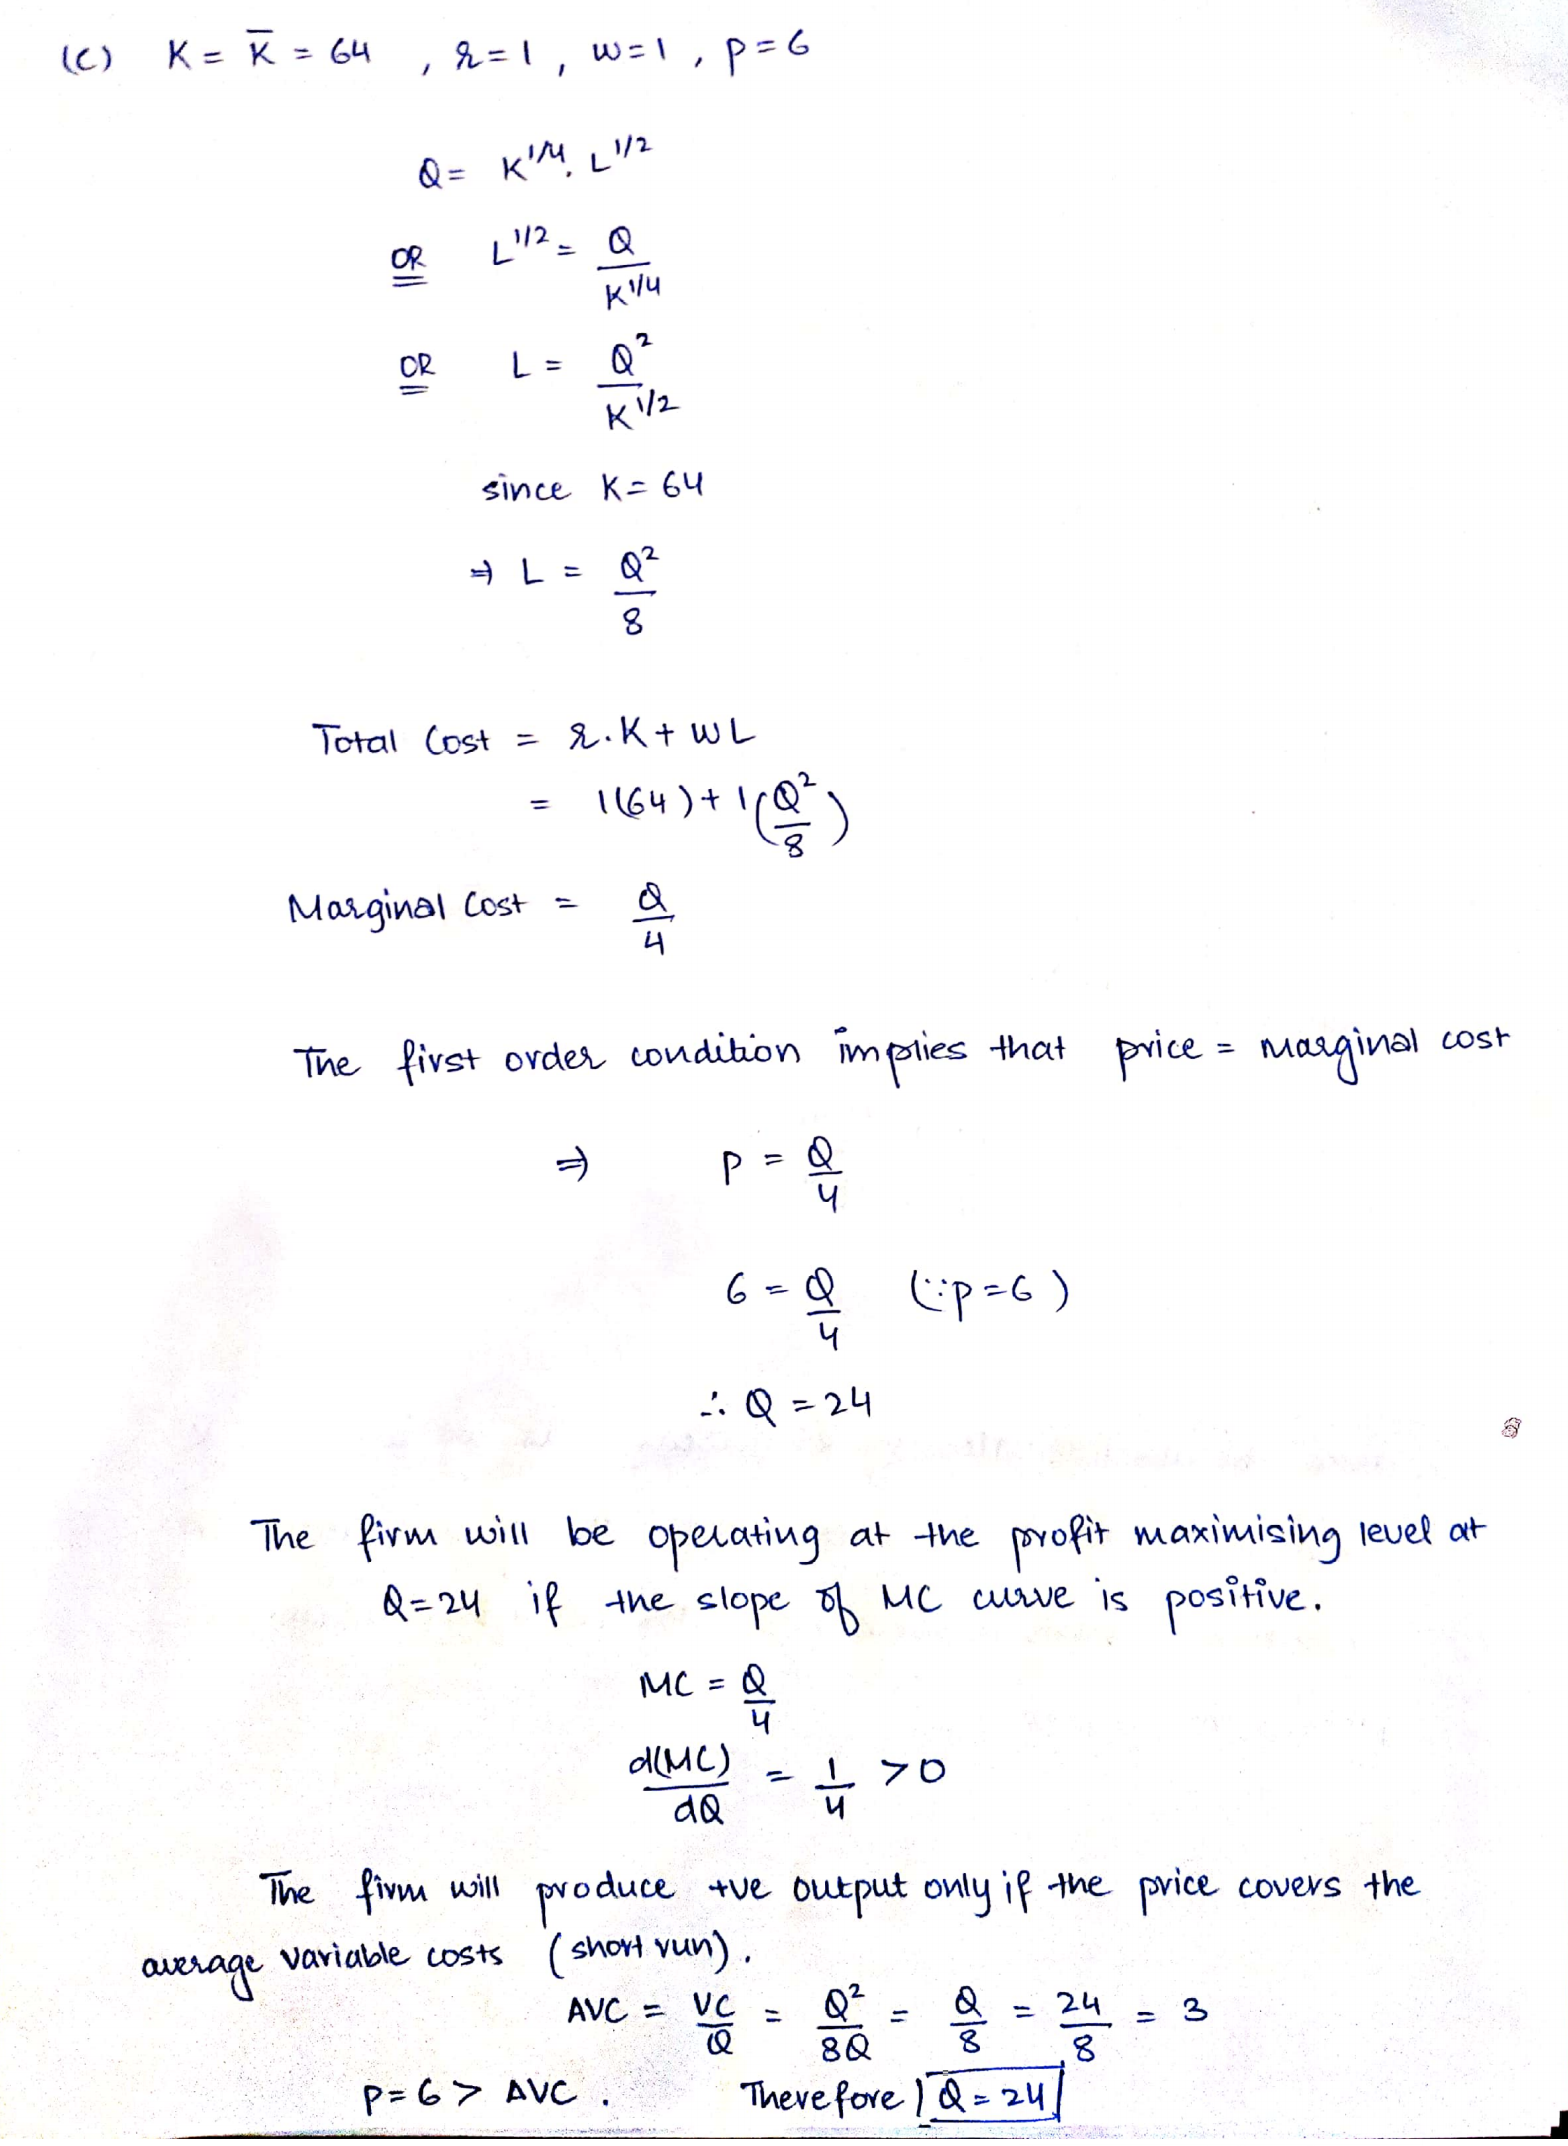 (C) K = K̅ = 64 , r=1 , w=1 , p=6
Q = K^1/4 . L^1/2
OR L^1/2 = Q/K^1/4
OR L = Q²/K^1/2
since K = 64
⇒ L = Q²/8
Total Cost = r.K + wL
= 1(64) + 1(Q²/8)
Marginal Cost = Q/4
The first order condition implies that price = marginal cost
⇒ P = Q/4
6 = Q/4 (∵p=6)
∴ Q = 24
The firm will be operating at the profit maximising level at
Q=24 if the slope of MC curve is positive.
MC = Q/4
d(MC)/dQ = 1/4 >0
The firm will produce +ve output only if the price covers the
average variable costs (short run).
AVC = VC/Q = Q²/8Q = Q/8 = 24/8 = 3
P=6 > AVC . Therefore Q=24